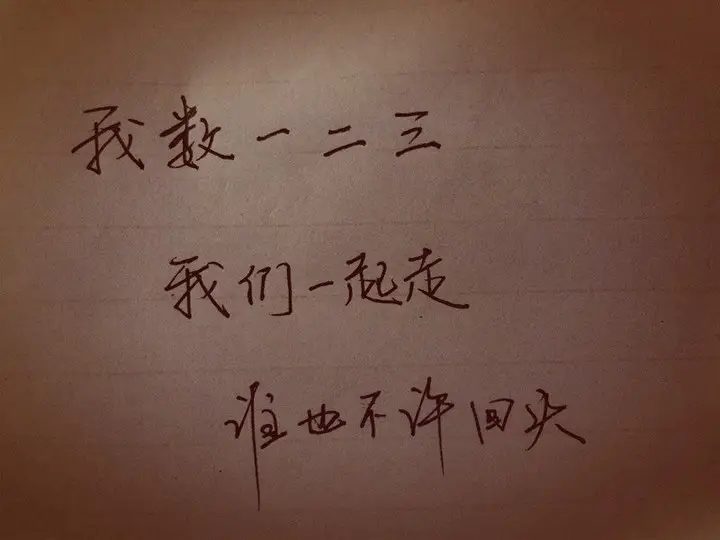 我数一二三
我们一起走
谁也不许回头